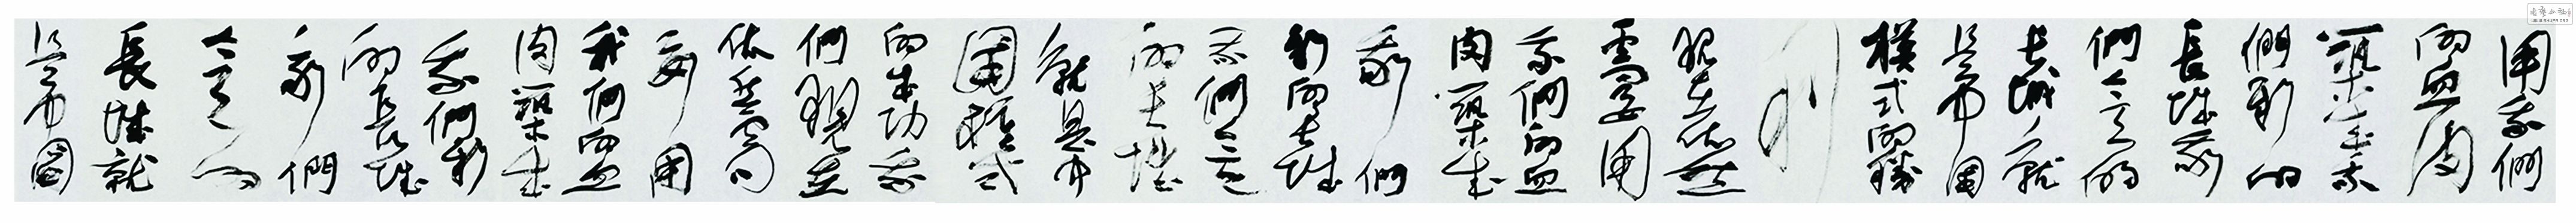 用我們
的血肉
築成我
們新的
長城我
們今天的
長城就
是中國
模式的勝
利
現在依然
需要用
我們的血
肉築成
我們
新的長城
我們今天
的長城
就是中
國模式
的成功我
們現在
依然需
要用
我們的血
肉築成
我們新
的長城
我們
今天的
長城就
是中國